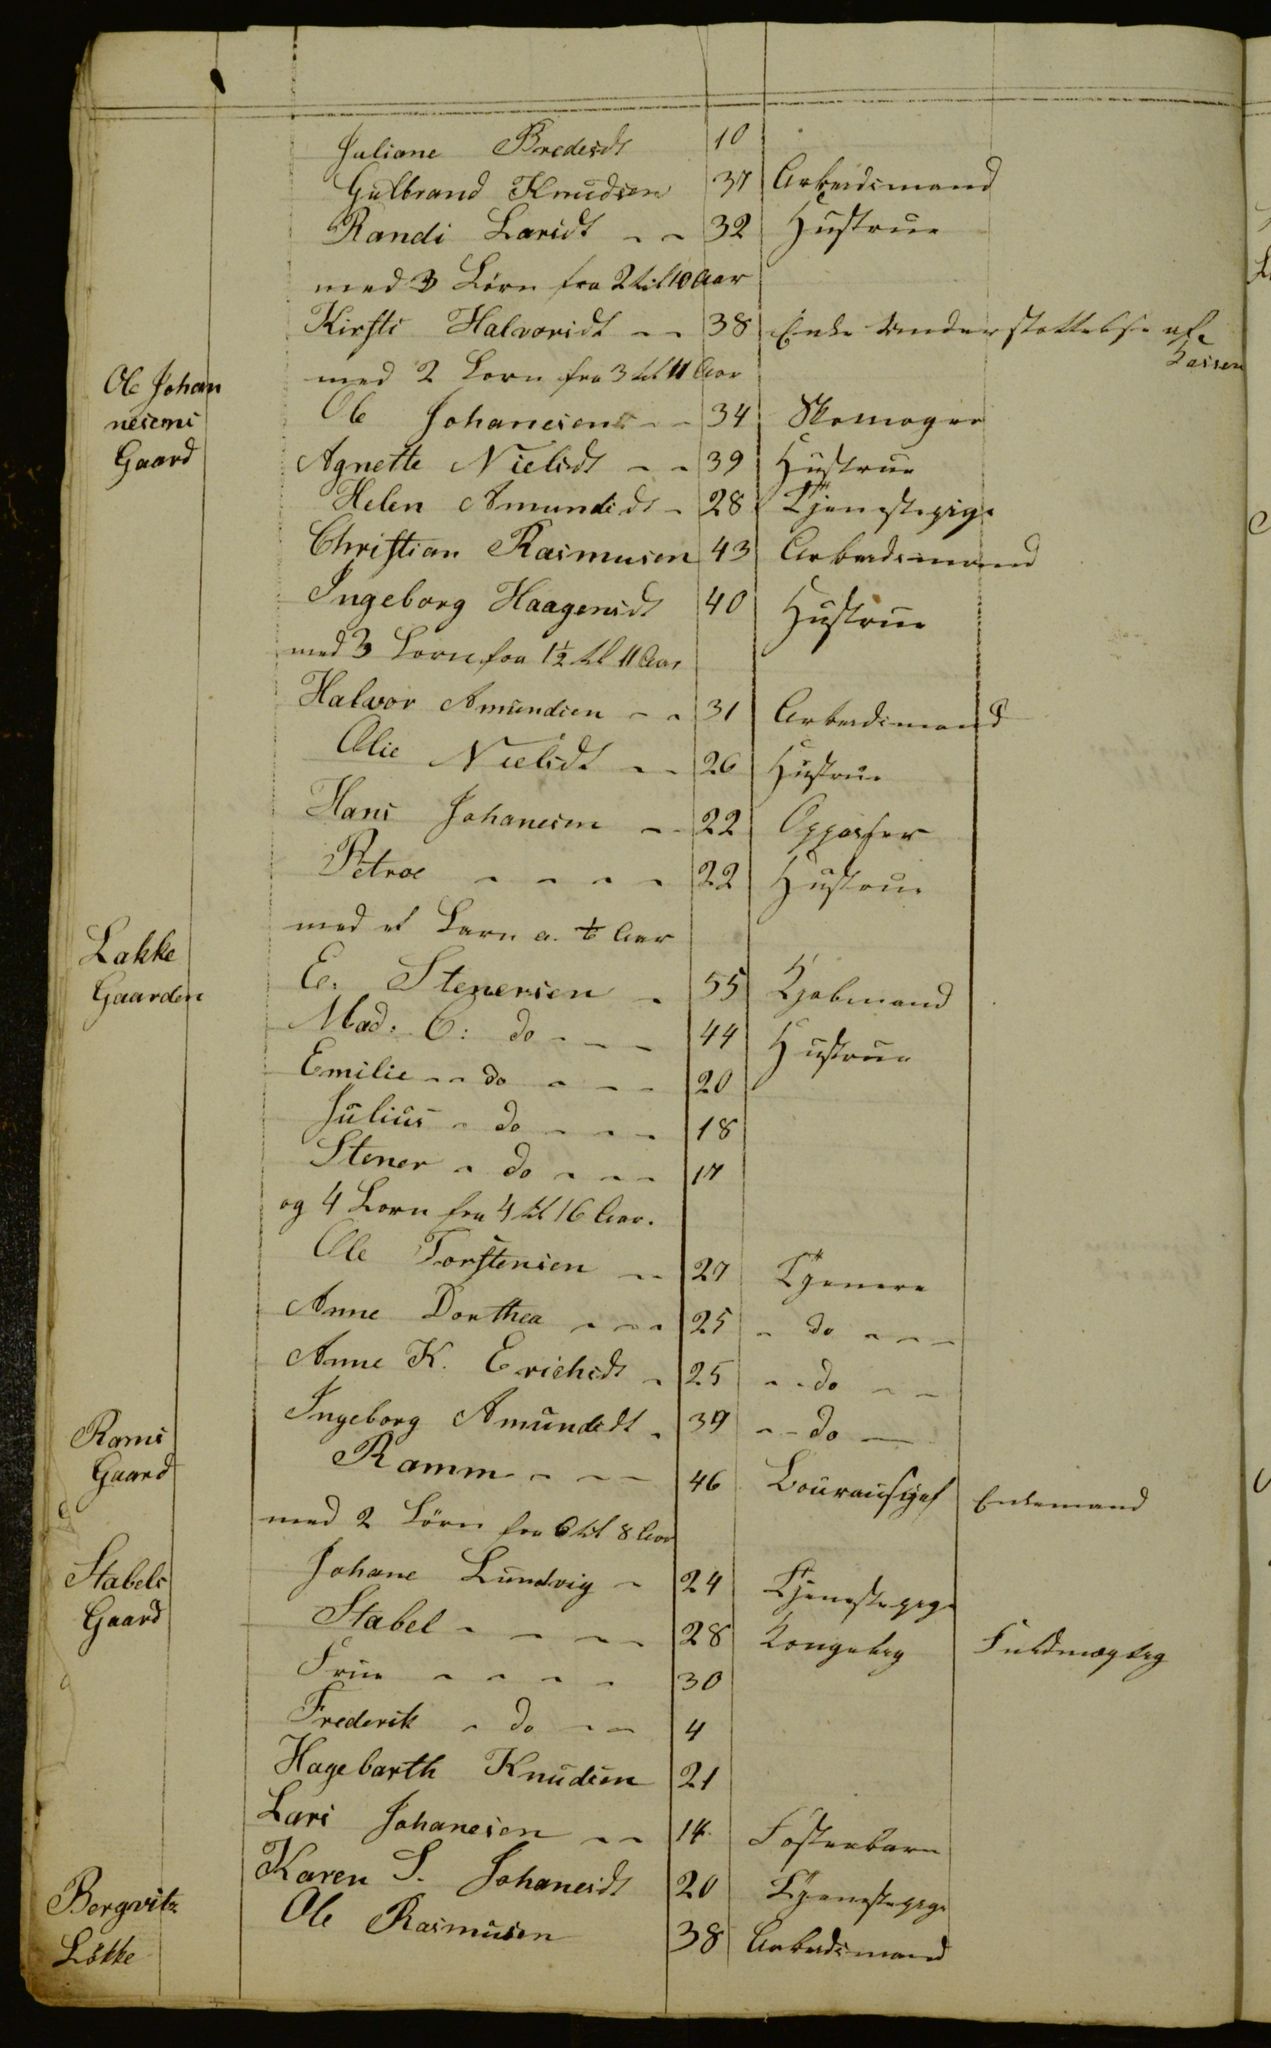 Juliane Bredesdt 10
Gulbrand Knudsen 37 Arbeidsmand
Randi Larsdt - - 32 Hustrue
med 3 Børn fra 2 til 10 Aar
Kirsti Halvorsdt - - 38 Enke Understøttelse af
Kassen
med 2 Børn fra 3 til 11 Aar
Ole Johan
nesens
Gaard
Ole Johanesen - - 34 Skomager
Agnette Nielsdt - - 39 Hustrue
Helen Amundsdt - 28 Tjenestepige
Christian Rasmusen 43 Arbeidsmand
Ingeborg Haagensdt 40 Hustrue
med 3 Børn fra 1½ til 11 Aar
Halvor Amundsen - - 31 Arbeidsmand
Olie Nielsdt - - 26 Hustrue
Hans Johanesen - - 22 Oppasser
Petroe - - - - 22 Hustrue
med et Barn a. Aar
Lakke
Gaarden
E. Stenersen - 55 Kjøbmand
Mad: C: do - - - 44 Hustrue
Emilie - - do - - - 20
Julius - do - - - 18
Stener - do - - - 17
og 4 Børn fra 4 til 16 Aar.
Ole Torstensen - - 27 Tjenere
Anne Dorthea - - - 25 - do - - -
Anne K. Erichsdt - 25 - - do - -
Ingeborg Amundsdt - 39 - - do -
Rams
Gaard
Ramm - - - 46 Enkemand
med 2 Børn fra 6 til 8 Aar
Johane Lundvig - 24 Tjenestepige
Stabels
Gaard
Stabel - - - - 28 Kongelig Fuldmægtig
Frue - - - - 30
Frederik - do - - 4
Hagebarth Knudsen 21
Lars Johanesen - - 14 Fosterbarn
Karen S. Johanesdt 20 Tjenestepige
Bergvitz
Løkke
Ole Rasmusen 38 Arbeidsmand